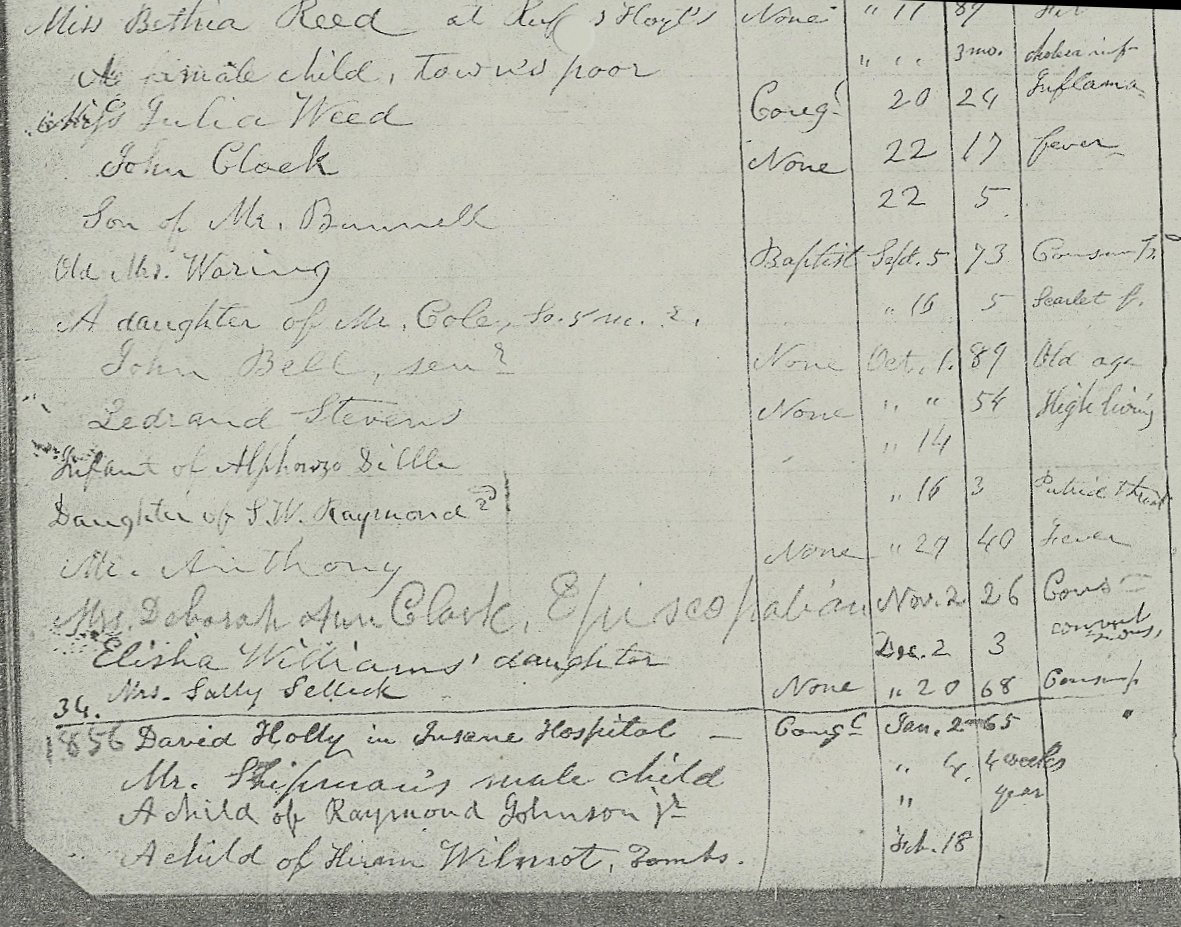 Miss Bethia Reed at Ruf s Hoyt's None " 11 89
A male child, town's poor " " 3 mo. cholera inf
Miss Julia Weed Cong'l 20 24 Inflama
John Clock None 22 17 fever
Son of Mr. Bunnell 22 5
Old Mrs. Waring Baptist Sept. 5 73 Consum
A daughter of Mr. Cole, So. 5 m. " 16 5 Scarlet f.
John Bell, senr None Oct. 1. 89 Old age
Stevens None " " 54 High living
Infant of Alphonzo Dibble " 14
Daughter of S. W. Raymond 2d " 16 3 Putrid throat
Mr. Anthony None " 29 40 Fever
Mrs. Deborah Ann Clark, Episcopalian Nov. 2 26 Cons
Elisha Williams' daughter Dec. 2 3 convulsions,
Mrs. Sally Selleck None " 20 68 Consump
34.
1856 David Holly in Insane Hospital — Cong'l Jan. 2 65 "
Mr. Shipman's male child " 4. 4 weeks
A child of Raymond Johnson jr " year
A child of Hiram Wilmot, Tombs. Feb. 18